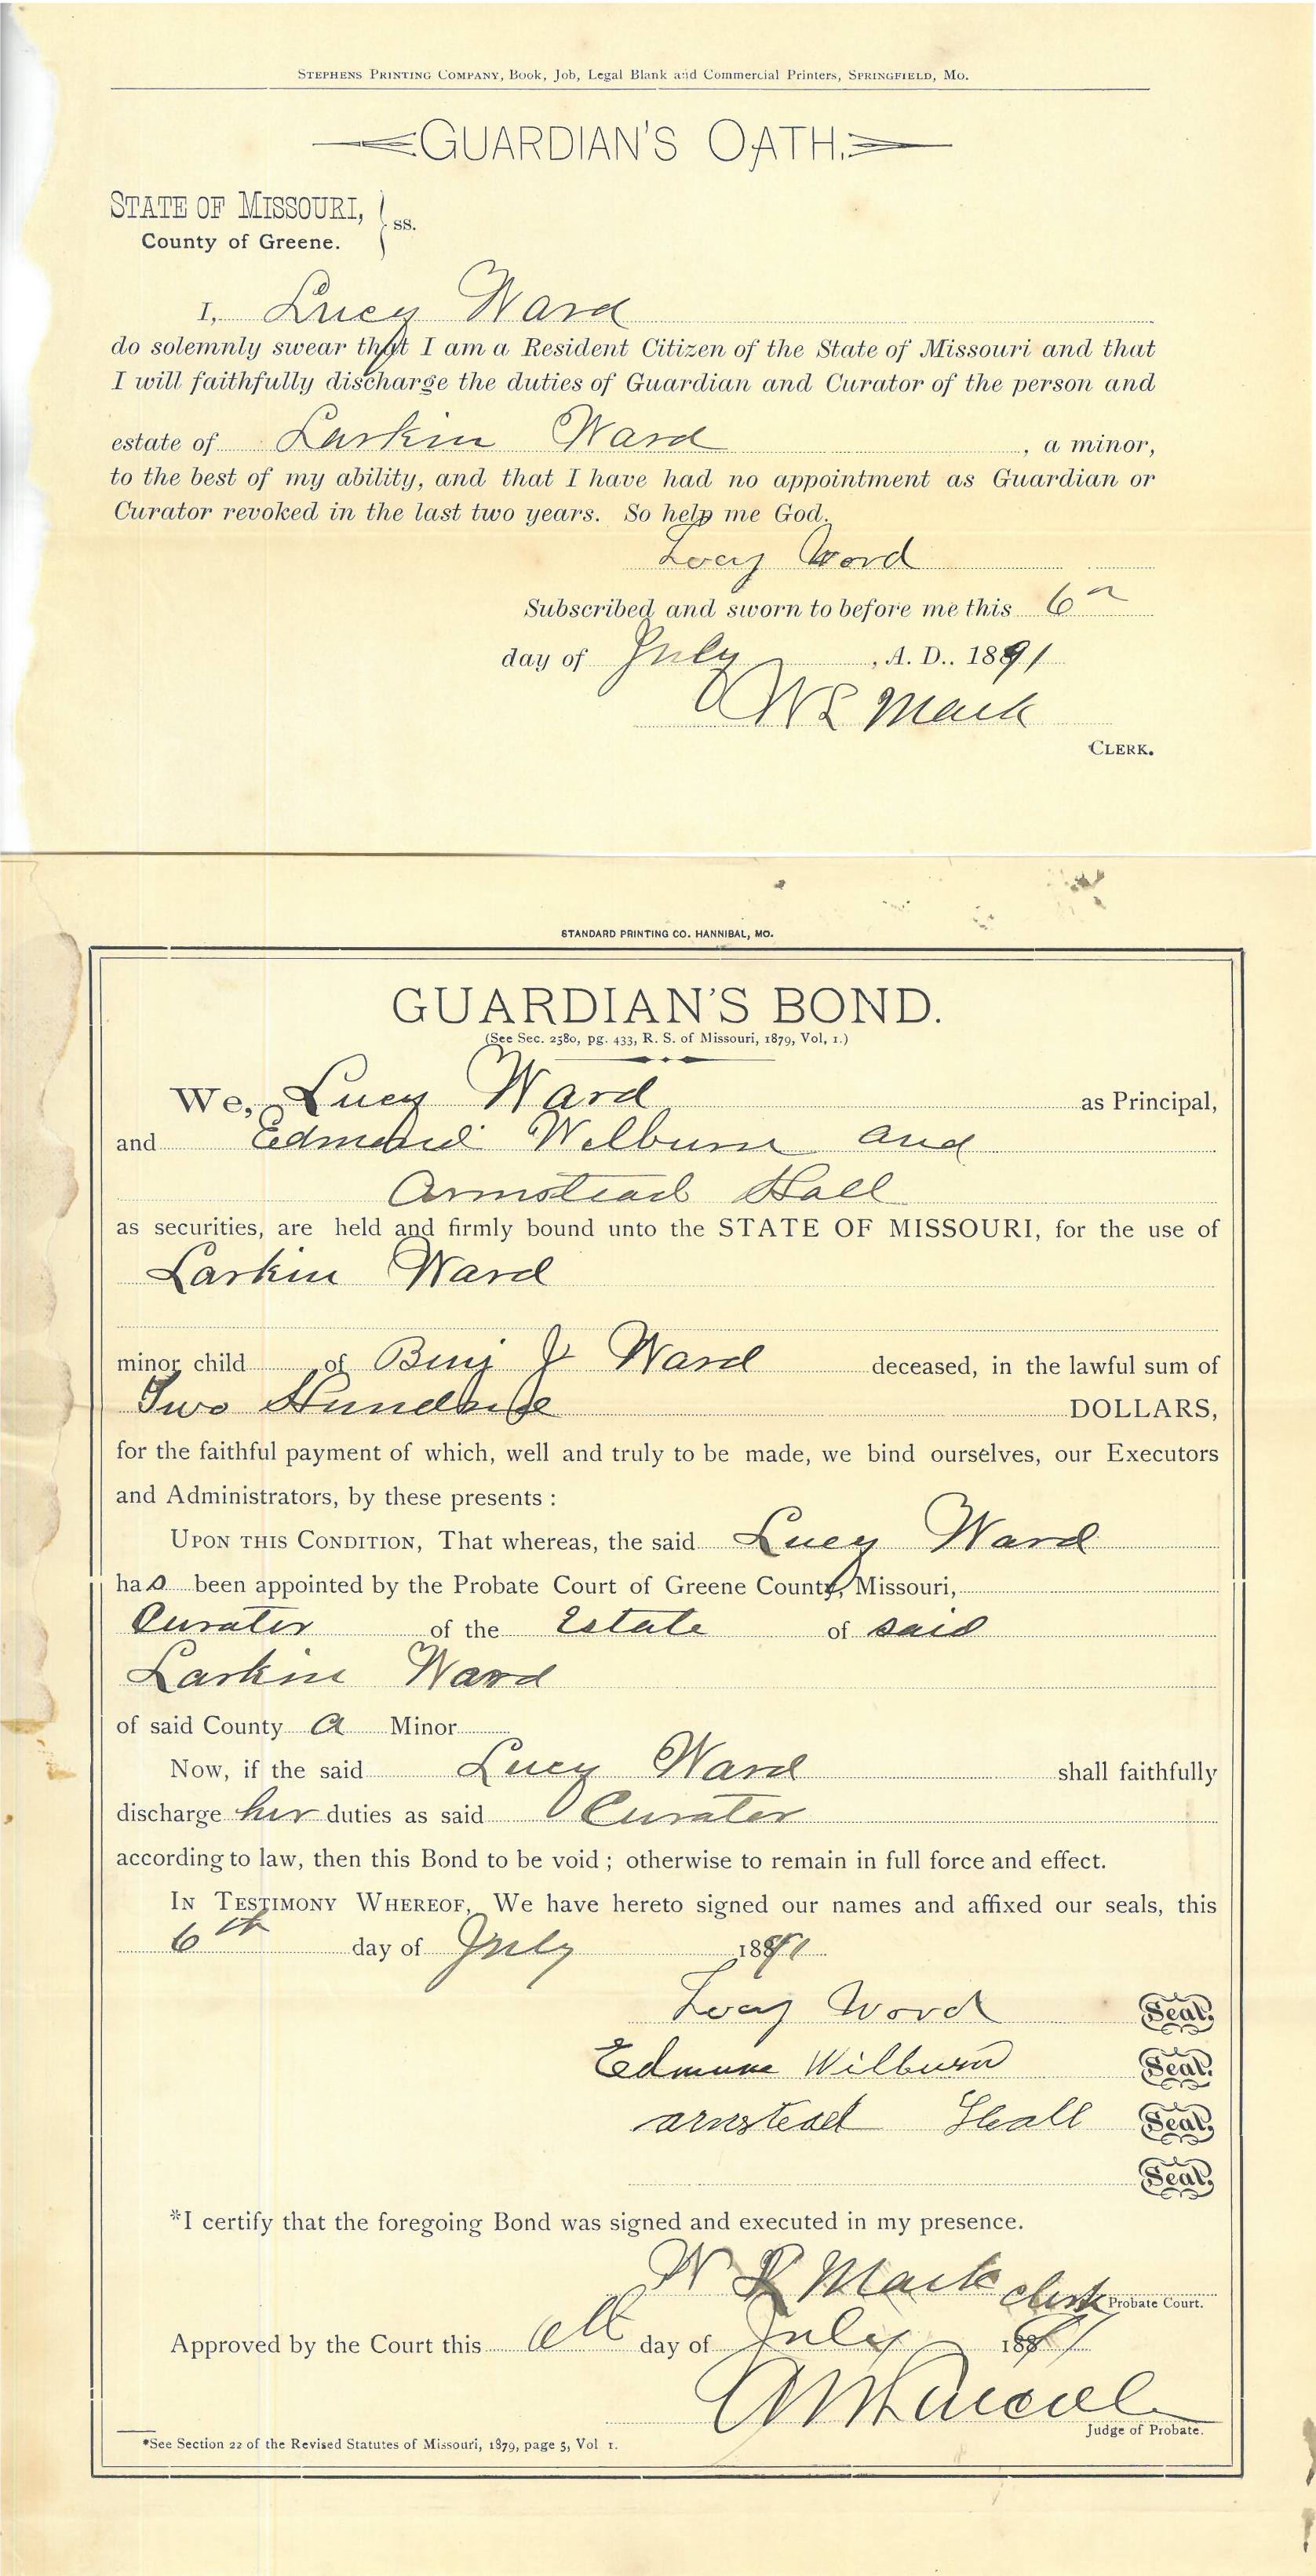 STEPHENS PRINTING COMPANY, Book, Job, Legal Blank and Commercial Printers, SPRINGFIELD, MO.
GUARDIAN'S OATH.
STATE OF MISSOURI, } ss.
County of Greene.
I, Lucy Ward
do solemnly swear that I am a Resident Citizen of the State of Missouri and that
I will faithfully discharge the duties of Guardian and Curator of the person and
estate of Larkin Ward , a minor,
to the best of my ability, and that I have had no appointment as Guardian or
Curator revoked in the last two years. So help me God.
Locy Word
Subscribed and sworn to before me this 6
day of July , A. D.. 1891
W L Mack
CLERK.
STANDARD PRINTING CO. HANNIBAL, MO.
GUARDIAN'S BOND.
(See Sec. 2580, pg. 433, R. S. of Missouri, 1879, Vol, 1.)
We, Lucy Ward as Principal,
and Edmund Wilburn and
Armstead Hall
as securities, are held and firmly bound unto the STATE OF MISSOURI, for the use of
Larkin Ward
minor child of Benj J Ward deceased, in the lawful sum of
Two Hundred DOLLARS,
for the faithful payment of which, well and truly to be made, we bind ourselves, our Executors
and Administrators, by these presents :
UPON THIS CONDITION, That whereas, the said Lucy Ward
has been appointed by the Probate Court of Greene County, Missouri,
Curater of the Estate of said
Larkin Ward
of said County a Minor
Now, if the said Lucy Ward shall faithfully
discharge her duties as said Curater
according to law, then this Bond to be void ; otherwise to remain in full force and effect.
IN TESTIMONY WHEREOF, We have hereto signed our names and affixed our seals, this
6th day of July 1891
Locy Word Seal.
Edmund Wilburn Seal.
armstead Hall Seal.
Seal.
*I certify that the foregoing Bond was signed and executed in my presence.
W L Mack clerk Probate Court.
Approved by the Court this 6th day of July 1891
Judge of Probate.
*See Section 22 of the Revised Statutes of Missouri, 1879, page 5, Vol 1.